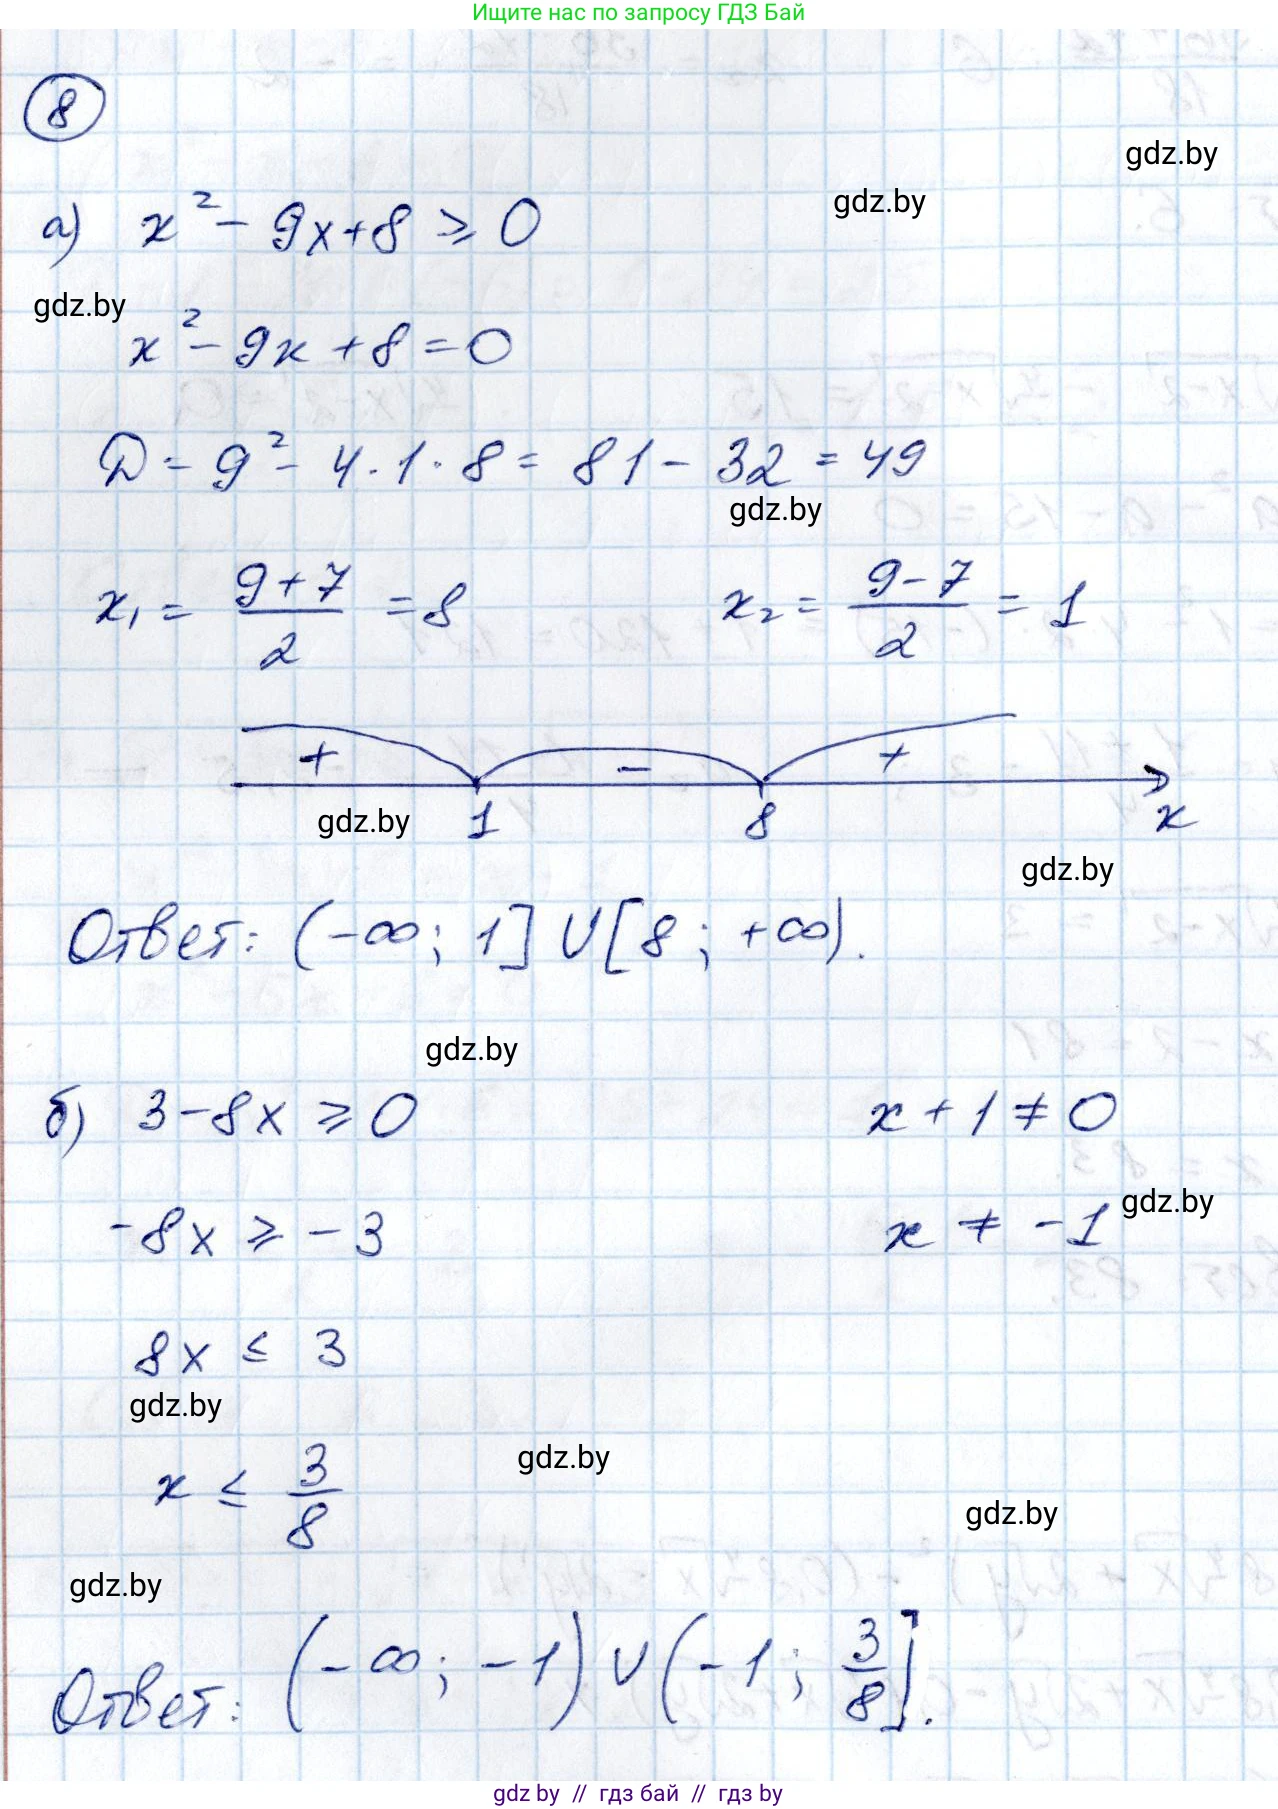 Ищите нас по запросу ГДЗ Бай
8
gdz.by
gdz.by
а) x² - 9x + 8 ⩾ 0
gdz.by
x² - 9x + 8 = 0
D = 9² - 4 · 1 · 8 = 81 - 32 = 49
gdz.by
x₁ = (9+7)/2 = 8    x₂ = (9-7)/2 = 1
+ - +
gdz.by 1 8 x
gdz.by
Ответ: (-∞; 1] ∪ [8; +∞).
gdz.by
б) 3 - 8x ⩾ 0    x + 1 ≠ 0
gdz.by
-8x ⩾ -3    x ≠ -1
8x ≤ 3
gdz.by
gdz.by
x ≤ 3/8
gdz.by
gdz.by
Ответ: (-∞; -1) ∪ (-1; 3/8].
gdz by // гдз бай // гдз by